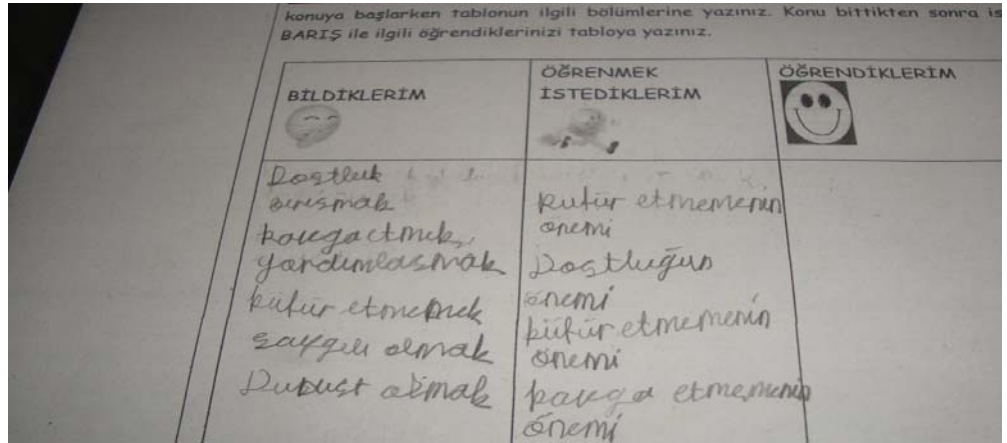 konuya başlarken tablonun ilgili bölümlerine yazınız. Konu bittikten sonra is
BARIŞ ile ilgili öğrendiklerinizi tabloya yazınız.
BİLDİKLERİM
ÖĞRENMEK
İSTEDİKLERİM
ÖĞRENDİKLERİM
Dostluk
Barışmak
kavga etmek,
yardımlaşmak
küfür etmemek
saygılı olmak
Dürüst olmak
küfür etmemenin
önemi
Dostluğun
önemi
küfür etmemenin
önemi
kavga etmemenin
önemi